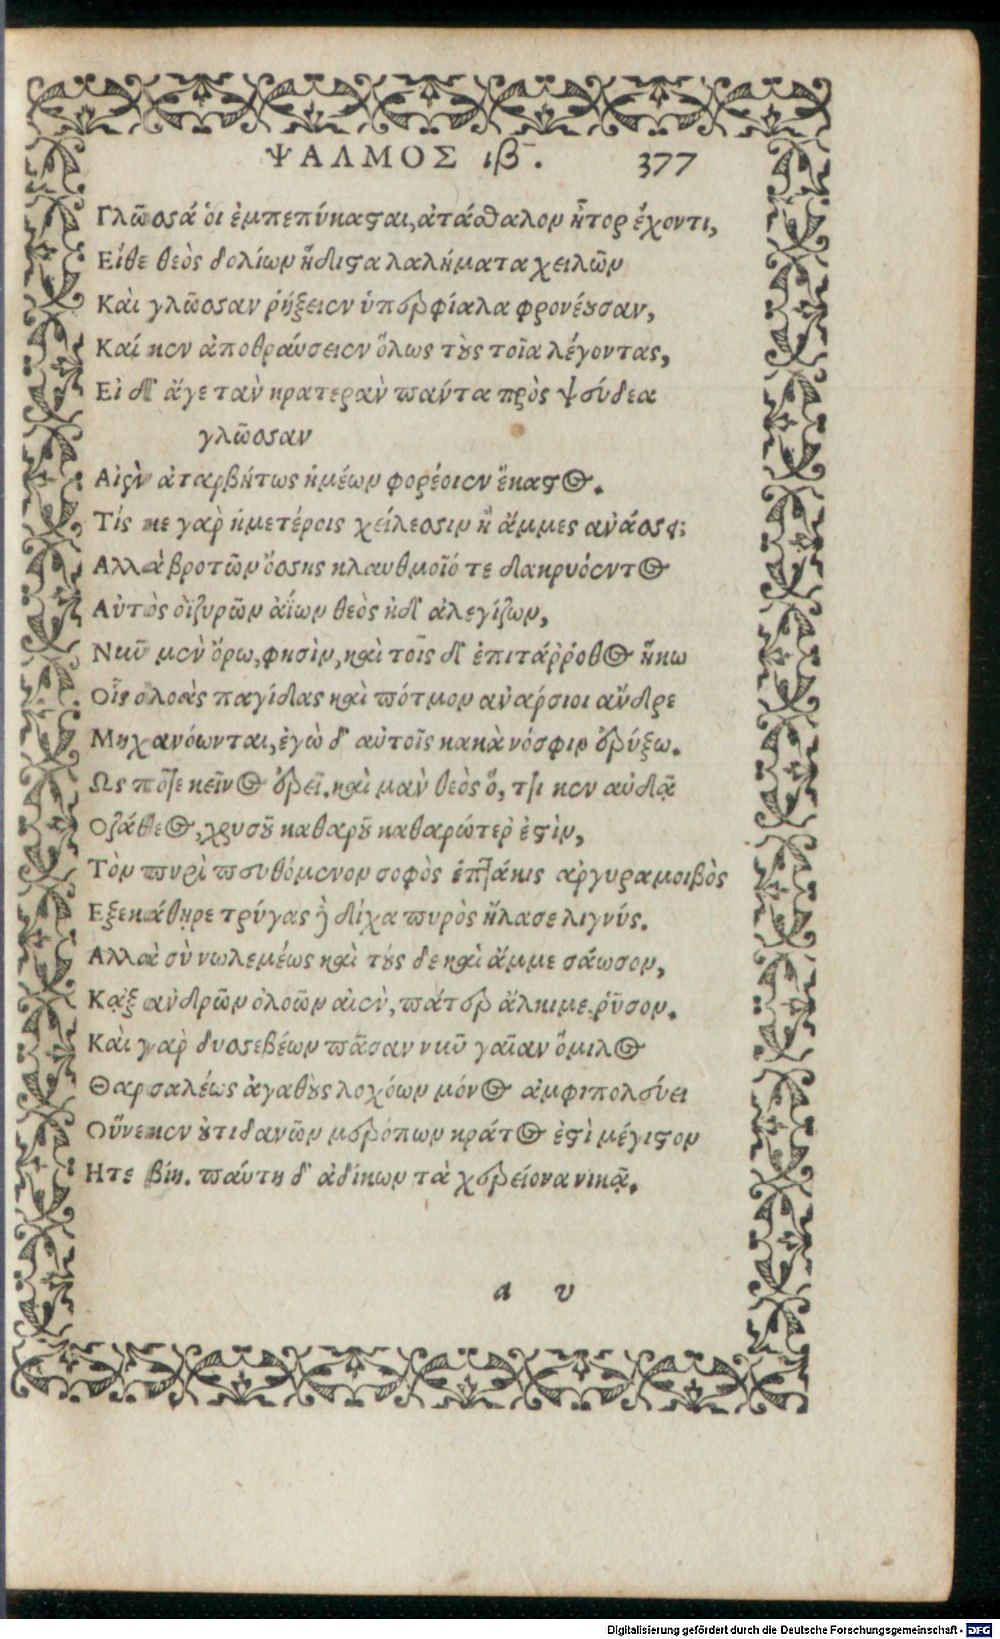 ΨΑΛΜΟΣ ιβ. 377
Γλῶσσά ὁι ἐμπεπύκασαι, ἀτάσθαλον ἦτορ ἔχοντι,
Εἴθε θεὸς δολίων ἥδιστα λαλήματα χειλῶν
Καὶ γλῶσσαν ῥήξειεν ὑπερφίαλα φρονέουσαν,
Καί κεν ἀποθραύσειεν ὅλως τοὺς τοῖα λέγοντας,
Εἰ δ' ἄγε ταὶν κρατερὰν πάντα πρὸς ψεύδεα
γλῶσσαν
Αἰὲν ἀταρβήτως ἡμέων φορέοιεν ἕκαστος.
Τίς κε γὰρ ἡμετέροις χείλεσσιν ἢ ἄμμες ἀνάσσει;
Αλλὰ βροτῶν ὄσσης κλαυθμοῖό τε δακρυόεντος
Αὐτὸς ὀϊζυρῶν ἀΐων θεὸς ἠδ' ἀλεγίζων,
Νῦν μὲν ὄρω, φησὶν, καὶ τοῖς δ' ἐπιτάῤῥοθος ἥκω
Οἷς ὀλοὰς παγίδας καὶ πότμον ἀνάρσιοι ἄνδρες
Μηχανόωνται, ἐγὼ δ' αὐτοῖς κακὰ νόσφιν ἐρύξω.
Ως ποτε κεῖνος ἐρεῖ. καὶ μὰν θεὸς ὅ, τι κεν αὐδᾷ
Οζάθεος, χρυσοῦ καθαροῦ καθαρώτερ' ἐστὶν,
Τὸν πυρὶ πευθόμενον σοφὸς ἑπτάκις ἀργυραμοιβὸς
Εξεκάθηρε τρύγας ἢ δίχα πυρὸς ἤλασε λιγνύς.
Αλλὰ σὺ νωλεμέως καὶ τούς δε καὶ ἄμμε σάωσον,
Κᾀξ ἀνδρῶν ὀλοῶν αἰὲν, πάτερ ἄλκιμε, ῥῦσον.
Καὶ γὰρ δυσσεβέων πᾶσαν νῦν γαῖαν ὅμιλος
Θαρσαλέως ἀγαθοὺς λοχόων μόνος ἀμφιπολεύει
Οὕνεκεν οὐτιδανῶν μερόπων κράτος ἐστὶ μέγιστον
Ητε βίη. πάντη δ' ἀδίκων τὰ χερείονα νικᾷ.
a v
Digitalisierung gefördert durch die Deutsche Forschungsgemeinschaft - DFG